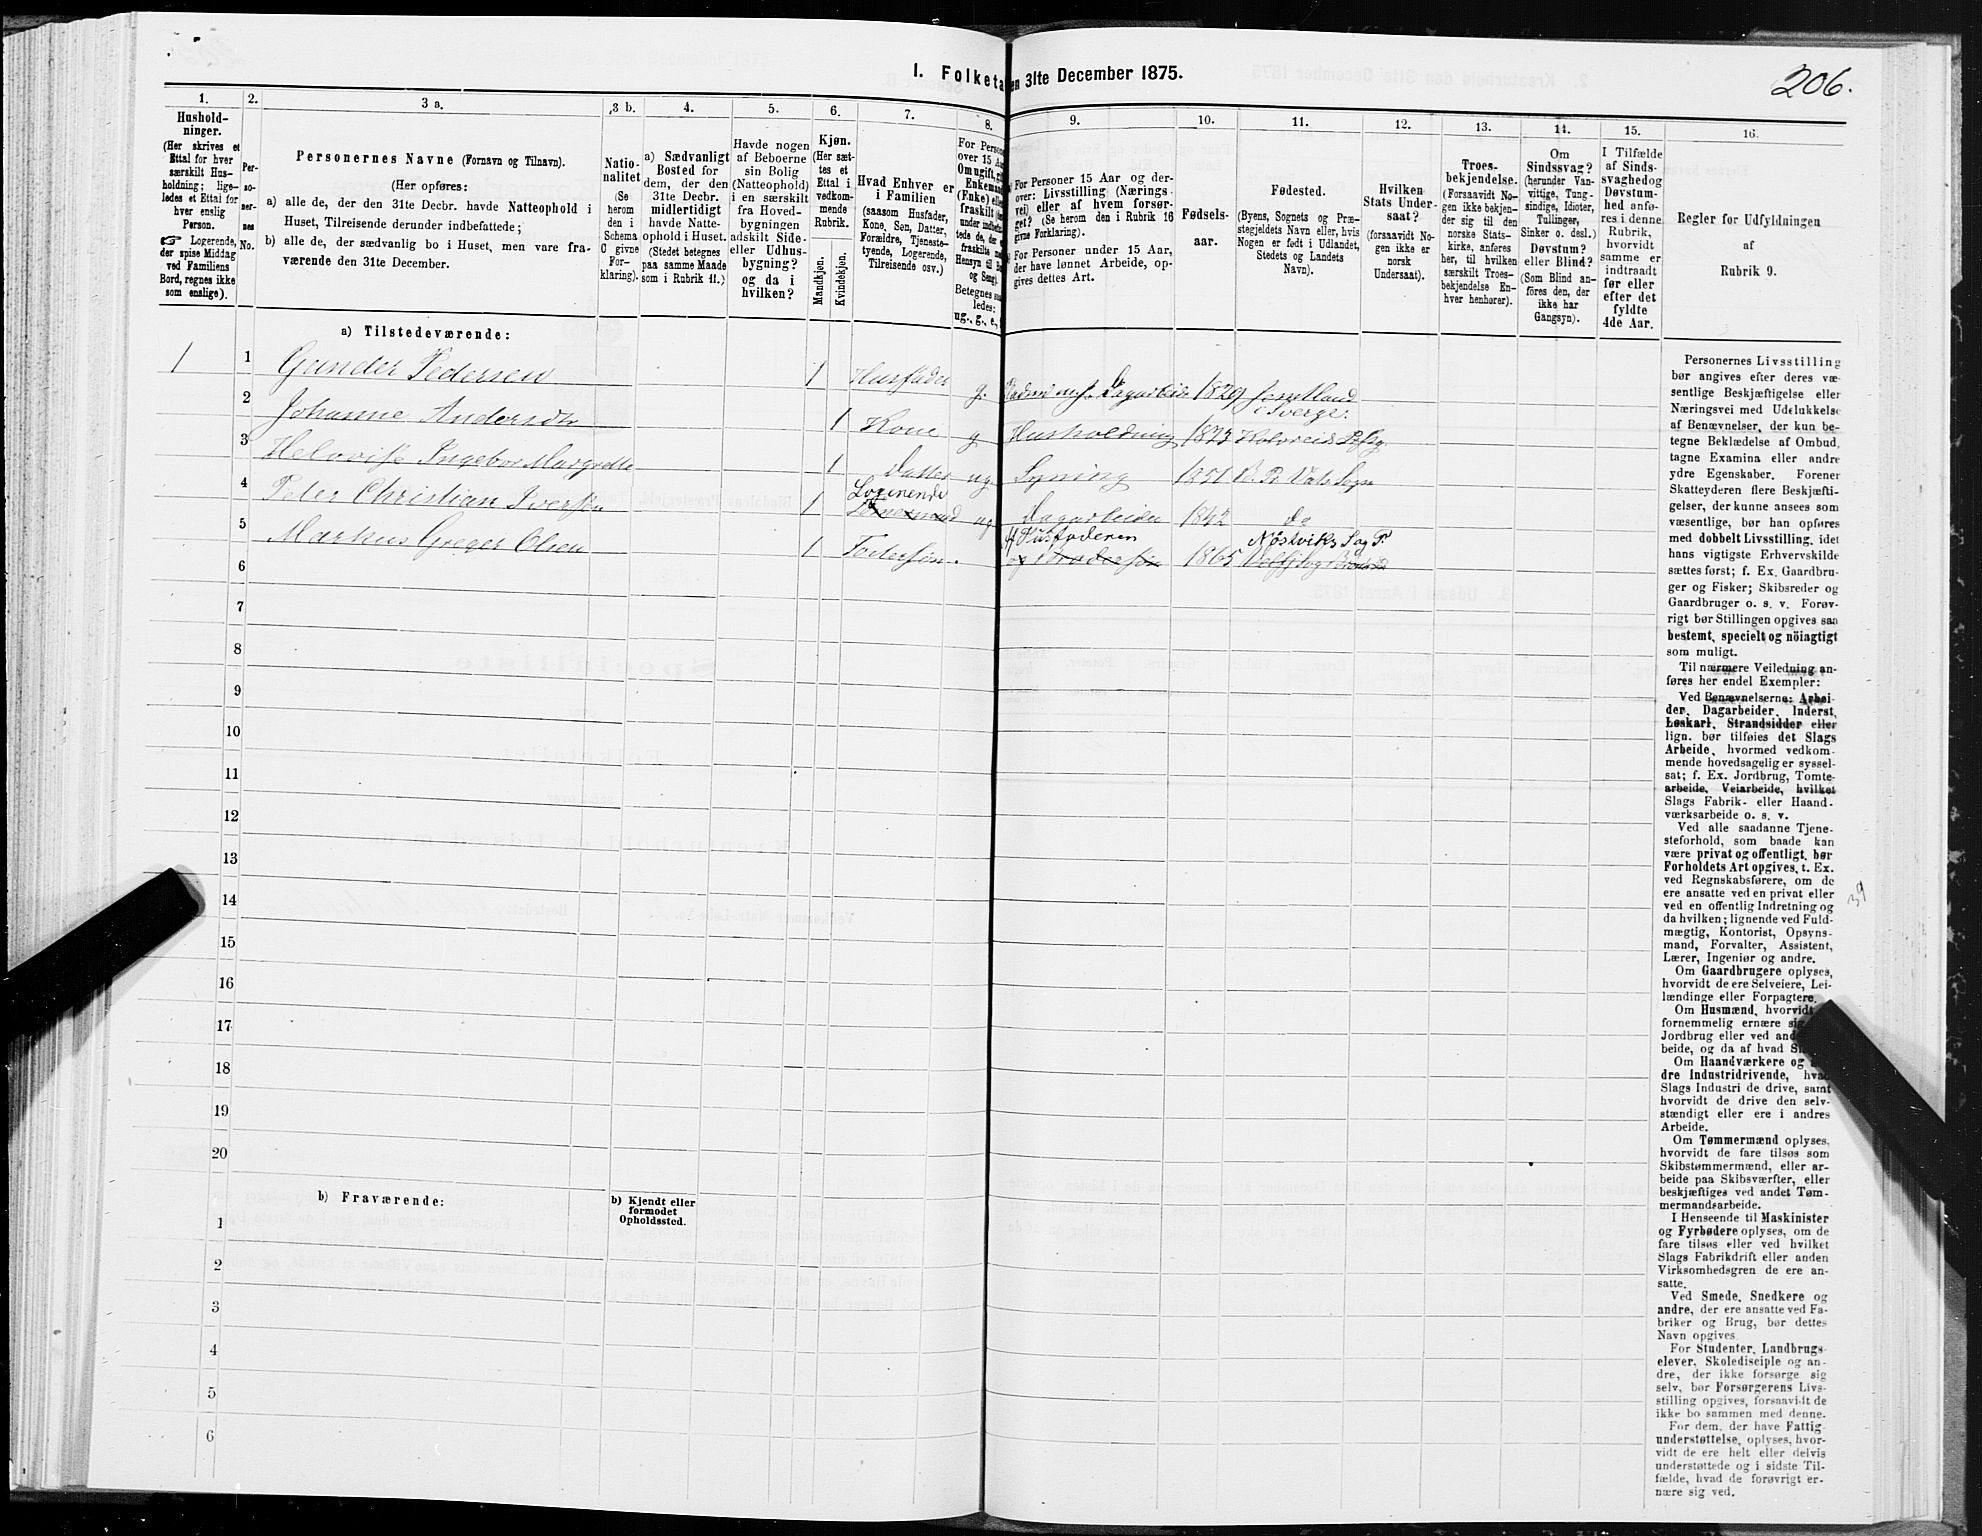 I. Folketa en 31te December 1875.
206.
1.
2.
3 a.
3 b.
4.
5.
6.
7.
8.
9.
10.
11.
12.
13.
14.
15.
16.
Hushold-
ninger.
(Her skrives et
Ettal for hver
særskilt Hus-
holdning; lige-
ledes et Ettal for
hver enslig
Person.
☞ Logerende,
der spise Middag
ved Familiens
Bord, regnes ikke
som enslige).
Per-
so-
ner-
nes
No.
Personernes Navne (Fornavn og Tilnavn).
(Her opføres:
a) alle de, der den 31te Decbr. havde Natteophold i
Huset, Tilreisende derunder indbefattede;
b) alle de, der sædvanlig bo i Huset, men vare fra-
værende den 31te December.
Natio-
nalitet
(Se
herom
den i
Schema
0 givne
For-
klaring).
a) Sædvanligt
Bosted for
dem, der den
31te Decbr.
midlertidigt
havde Natte-
ophold i Huset.
(Stedet betegnes
paa samme Maade
som i Rubrik 11.)
Havde nogen
af Beboerne
sin Bolig
(Natteophold)
i en særskilt
fra Hoved-
bygningen
adskilt Side-
eller Udhus-
bygning?
og da i
hvilken?
Kjøn.
(Her sæt-
tes et
Ettal i
vedkom-
mende
Rubrik.
Mandkjøn.
Kvindekjøn.
Hvad Enhver er
i Familien
(saasom Husfader,
Kone, Søn, Datter,
Forældre, Tjeneste-
tyende, Logerende,
Tilreisende osv.)
For Perso
over 15 Aa
Omugift, gi
Enkemand
(Enke) elle
fraskilt
under indbefat
tede de, der
fraskilte
Hensyn til B
og Seng).
Betegnes saa
ledes:
ug., g., e.,
For Personer 15 Aar og der-
over: Livsstilling (Nærings-
vei) eller af hvem forsør-
get? (Se herom den i Rubrik 16
givne Forklaring).
For Personer under 15 Aar,
der have lønnet Arbeide, op-
gives dettes Art.
Fødsels-
aar.
Fødested.
(Byens, Sognets og Præ-
stegjeldets Navn eller, hvis
Nogen er født i Udlandet,
Stedets og Landets
Navn).
Hvilken
Stats Under-
saat?
(forsaavidt No-
gen ikke er
norsk
Undersaat).
Troes-
bekjendelse.
(Forsaavidt No-
gen ikke bekjen-
der sig til den
norske Stats-
kirke, anføres
her, til hvilken
særskilt Troes-
bekjendelse En-
hver henhører).
Om
Sindssvag?
(herunder Van-
vittige, Tung-
sindige, Idioter,
Tullinger,
Sinker o. desl.)
Døvstum?
eller Blind?
(Som Blind an-
føres den, der
ikke har
Gangsyn).
I Tilfælde
af Sinds-
svaghed og
Døvstum-
hed anfø-
res i denne
Rubrik,
hvorvidt
samme er
indtraadt
før eller
efter det
fyldte
4de Aar.
Regler for Udfyldningen
af
Rubrik 9.
a) Tilstedeværende:
1 1 Gunder Pedersen 1 Husfader g. Dagarbeide 1829 Jemtland
i Sverge.
2 Johanne Andersdtr 1 Kone g Husholdning 1823 Kolvereid
3 Helvise Ingebor Margrethe 1 Datter ug Syning 1851
4 Peter Christian Iversen 1 Logerende ug Dagarbeider 1842 do
5 Markus Greger Olsen 1 Fostersøn. af Husfaderen 1865
6
7
8
9
10
11
12
13
14
15
16
17
18
19
20
b) Fraværende:
b) Kjendt eller
formodet
Opholdssted.
1
2
3
4
5
6
Personernes Livsstilling
bør angives efter deres væ-
sentlige Beskjæftigelse eller
Næringsvei med Udelukkelse
af Benævnelser, der kun be-
tegne Beklædelse af Ombud,
tagne Examina eller andre
ydre Egenskaber. Forener
Skatteyderen flere Beskjæfti-
gelser, der kunne ansees som
væsentlige, bør han opføres
med dobbelt Livsstilling, idet
hans vigtigste Erhvervskilde
sættes først; f. Ex. Gaardbru-
ger og Fisker; Skibsreder og
Gaardbruger o. s. v. Forøv-
rigt bør Stillingen opgives saa
bestemt, specielt og nöiagtigt
som muligt.
Til nærmere Veiledning an-
føres her endel Exempler:
Ved Benævnelserne: Arbei-
der, Dagarbeider, Inderst,
Løskarl, Strandsidder eller
lign. bør tilføies det Slags
Arbeide, hvormed vedkom-
mende hovedsagelig er syssel-
sat; f. Ex. Jordbrug, Tomte-
arbeide, Veiarbeide, hvilket
Slags Fabrik- eller Haand-
værksarbeide o. s. v.
Ved alle saadanne Tjene-
steforhold, som baade kan
være privat og offentligt, bør
Forholdets Art opgives, t. Ex.
ved Regnskabsførere, om de
ere ansatte ved en privat eller
ved en offentlig Indretning og
da hvilken; lignende ved Fuld-
mægtig, Kontorist, Opsyns-
mand, Forvalter, Assistent,
Lærer, Ingeniør og andre.
Om Gaardbrugere oplyses,
hvorvidt de ere Selveiere, Lei-
lændinge eller Forpagtere.
Om Husmænd, hvorvidt
fornemmelig ernære si
Jordbrug eller ved and
beide, og da af hvad S
Om Haandværkere og
dre Industridrivende, hva
Slags Industri de drive, samt
hvorvidt de drive den selv-
stændigt eller ere i andres
Arbeide.
Om Tømmermænd oplyses,
hvorvidt de fare tilsøs som
Skibstømmermænd, eller ar-
beide paa Skibsværfter, eller
beskjæftiges ved andet Tøm-
mermandsarbeide.
I Henseende til Maskinister
og Fyrbødere oplyses, om de
fare tilsøs eller ved hvilket
Slags Fabrikdrift eller anden
Virksomhedsgren de ere an-
satte.
Ved Smede, Snedkere og
andre, der ere ansatte ved Fa-
briker og Brug, bør dettes
Navn opgives
For Studenter, Landbrugs-
elever, Skoledisciple og an-
dre, der ikke forsørge sig
selv, bør Forsørgerens Livs-
stilling opgives, forsaavidt de
ikke bo sammen med denne.
For dem, der have Fattig-
understøttelse, oplyses, hvor-
vidt de ere helt eller delvis
understøttede og i sidste Til-
fælde, hvad de forøvrigt er-
nære sig ved.
39